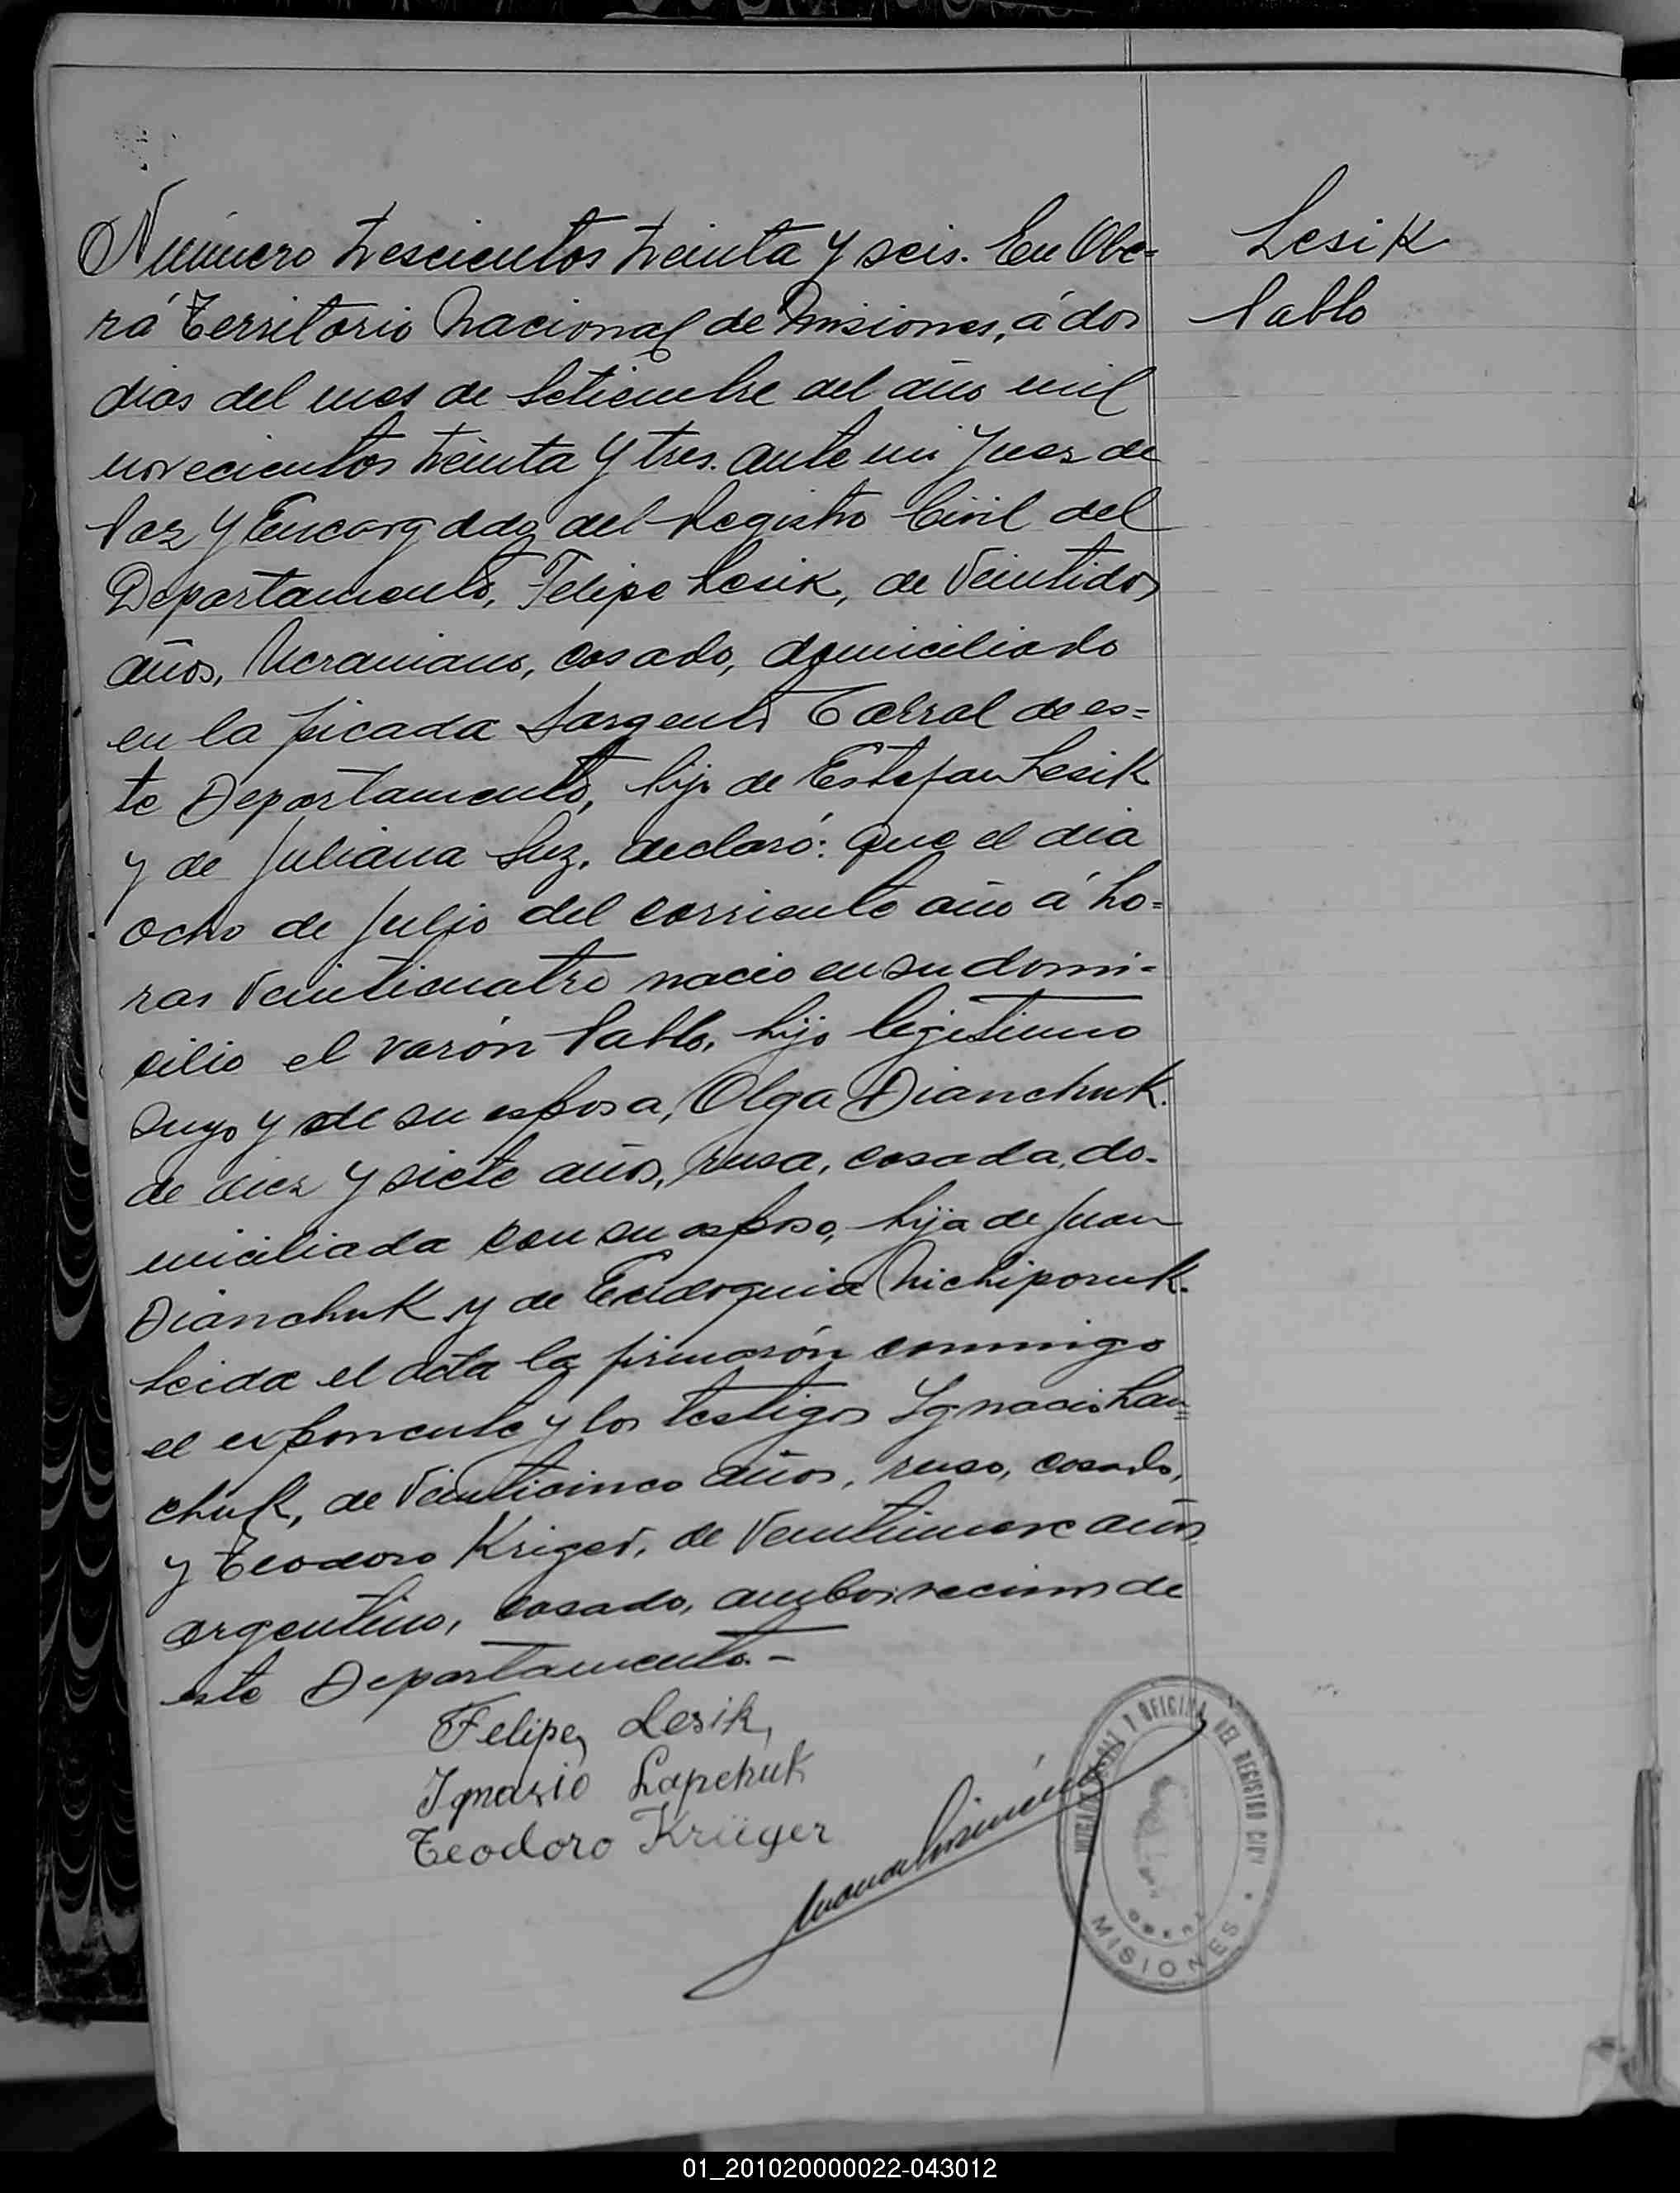 Número trescientos treinta y seis. En Obe=
rá Territorio Nacional de Misiones, á dos
dias del mes de Setiembre del año mil
novecientos treinta y tres. ante mi Juez de
Paz y Encargado del Registro Civil del
Departamento, Felipe Lesik, de Veintidos
años, Ucraniano, casado, domiciliado
en la picada Sargento Cabral de es=
te Departamento, hijo de Estefan Lesik
y de Juliana Luz. declaró: que el dia
ocho de Julio del corriente año á ho=
ras Veinticuatro nacio en su domi-
cilio el varón Pablo, hijo legitimo
suyo y de su esposa, Olga Dianchuk.
de diez y siete años, rusa, casada, do-
miciliada con su esposo, hija de Juan
Dianchuk y de Eudoquia Nichiporuk.
Leida el acta la firmarón conmigo
el exponente y los testigos Ignacio Lau=
chuk, de Veinticinco años, ruso, casado,
y Teodoro Kriger, de Veintinueve años,
argentino, casado, ambos vecinos de
este Departamento.-
Lesik
Pablo
Felipe Lesik,
Ignazio Lapchuk
Teodoro Krüger
OFICINA DEL REGISTRO CIVIL
OBERA
MISIONES
01_201020000022-043012